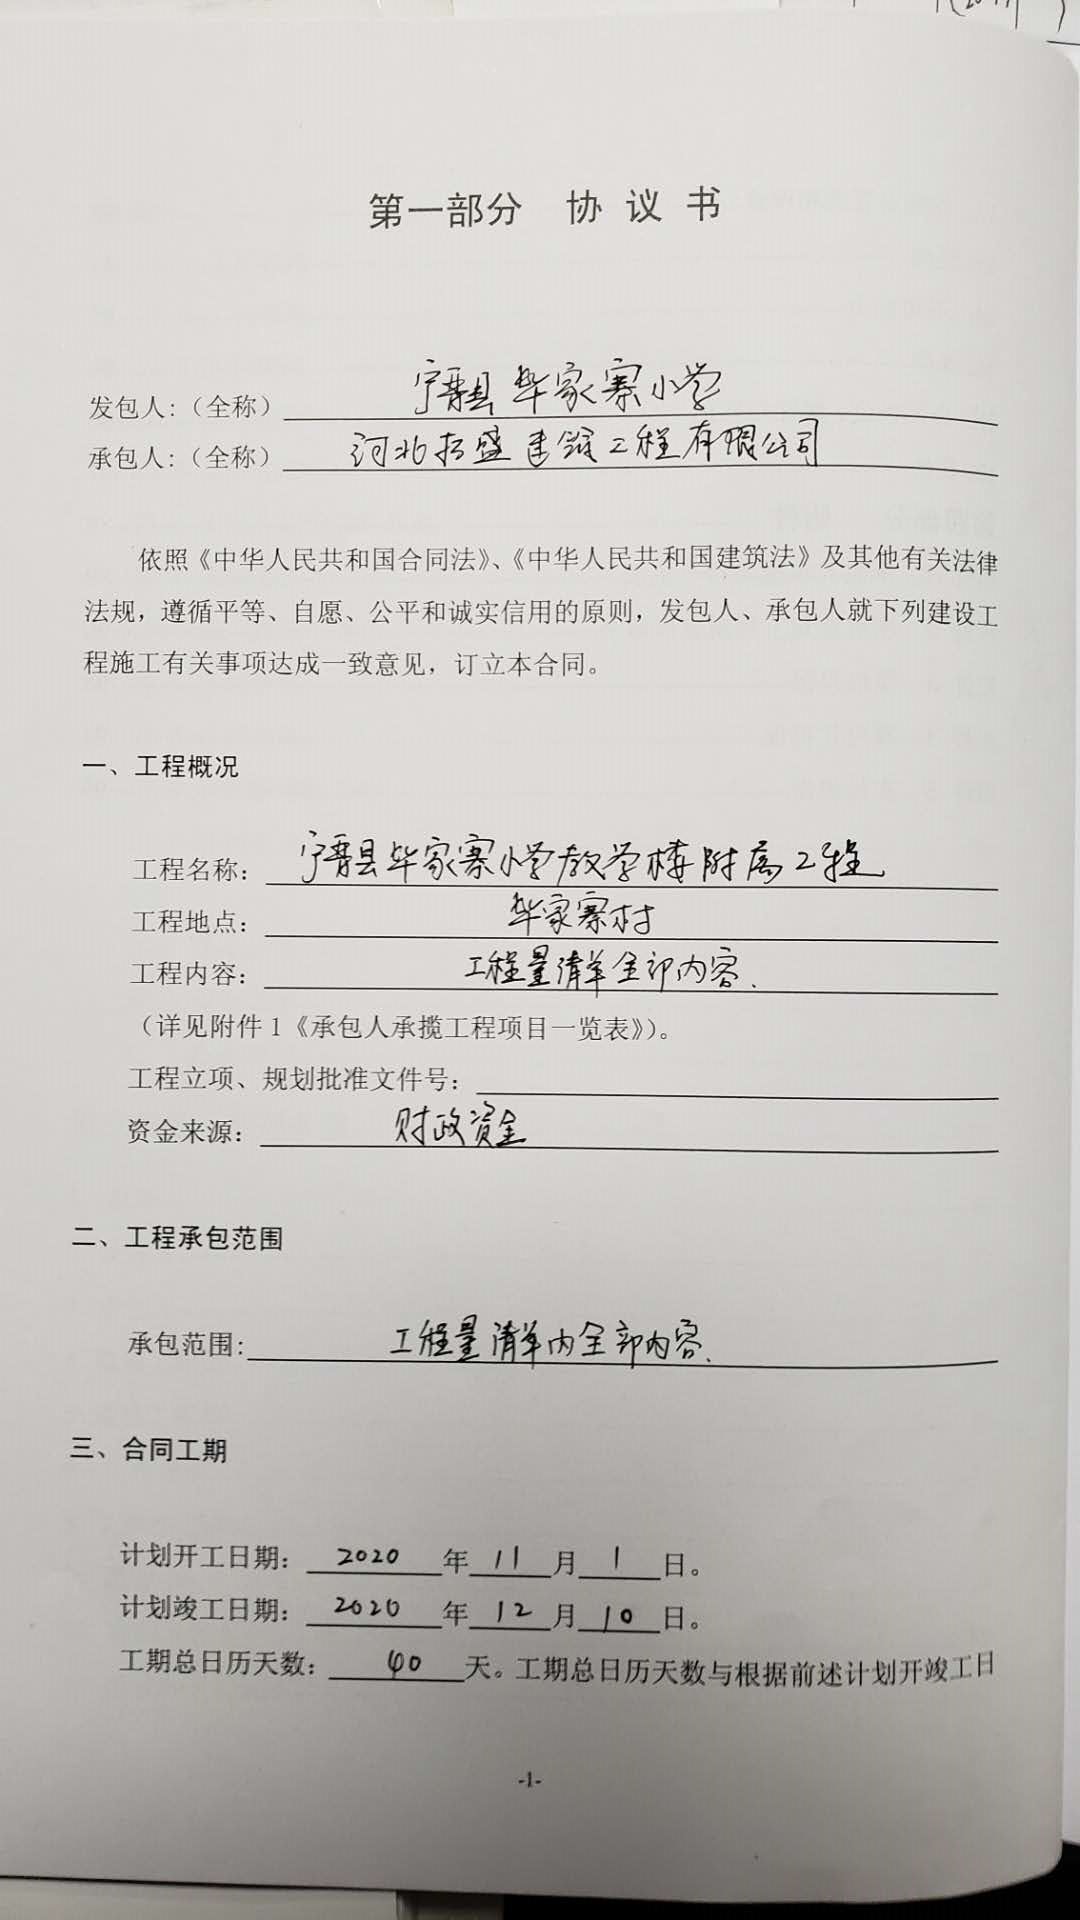 第一部分 协议书
发包人:（全称） 宁晋县毕家寨小学
承包人:（全称） 河北拓盛建筑工程有限公司
依照《中华人民共和国合同法》、《中华人民共和国建筑法》及其他有关法律
法规，遵循平等、自愿、公平和诚实信用的原则，发包人、承包人就下列建设工
程施工有关事项达成一致意见，订立本合同。
一、工程概况
工程名称： 宁晋县毕家寨小学教学楼附属工程
工程地点： 毕家寨村
工程内容： 工程量清单全部内容.
（详见附件1《承包人承揽工程项目一览表》）。
工程立项、规划批准文件号：
资金来源： 财政资金
二、工程承包范围
承包范围: 工程量清单内全部内容.
三、合同工期
计划开工日期： 2020 年 11 月 1 日。
计划竣工日期： 2020 年 12 月 10 日。
工期总日历天数： 40 天。工期总日历天数与根据前述计划开竣工日
-1-